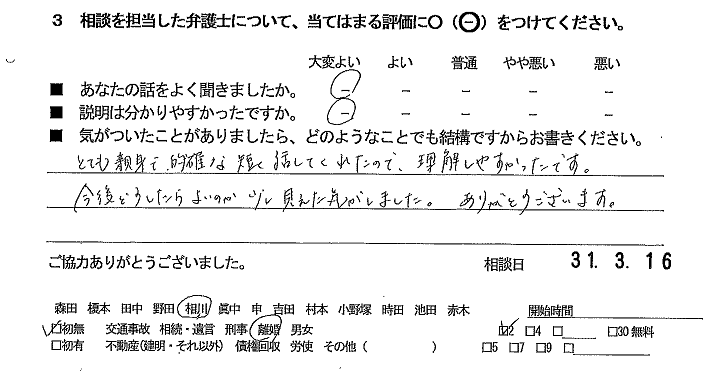 3 相談を担当した弁護士について、当てはまる評価に○（⊖）をつけてください。
大変よい よい 普通 やや悪い 悪い
■ あなたの話をよく聞きましたか。 － － － － －
■ 説明は分かりやすかったですか。 － － － － －
■ 気がついたことがありましたら、どのようなことでも結構ですからお書きください。
とても親身で、的確な短く話してくれたので、理解しやすかったです。
今後どうしたらよいのか少し見えた気がしました。 ありがとうございます。
ご協力ありがとうございました。 相談日 31. 3. 16
森田 榎本 田中 野田 相川 眞中 申 吉田 村本 小野塚 時田 池田 赤木 開始時間
☑初無 交通事故 相続・遺言 刑事 離婚 男女 ☑2 □4 □ □30 無料
□初有 不動産(建明・それ以外) 債権回収 労使 その他 ( ) □5 □7 □9 □